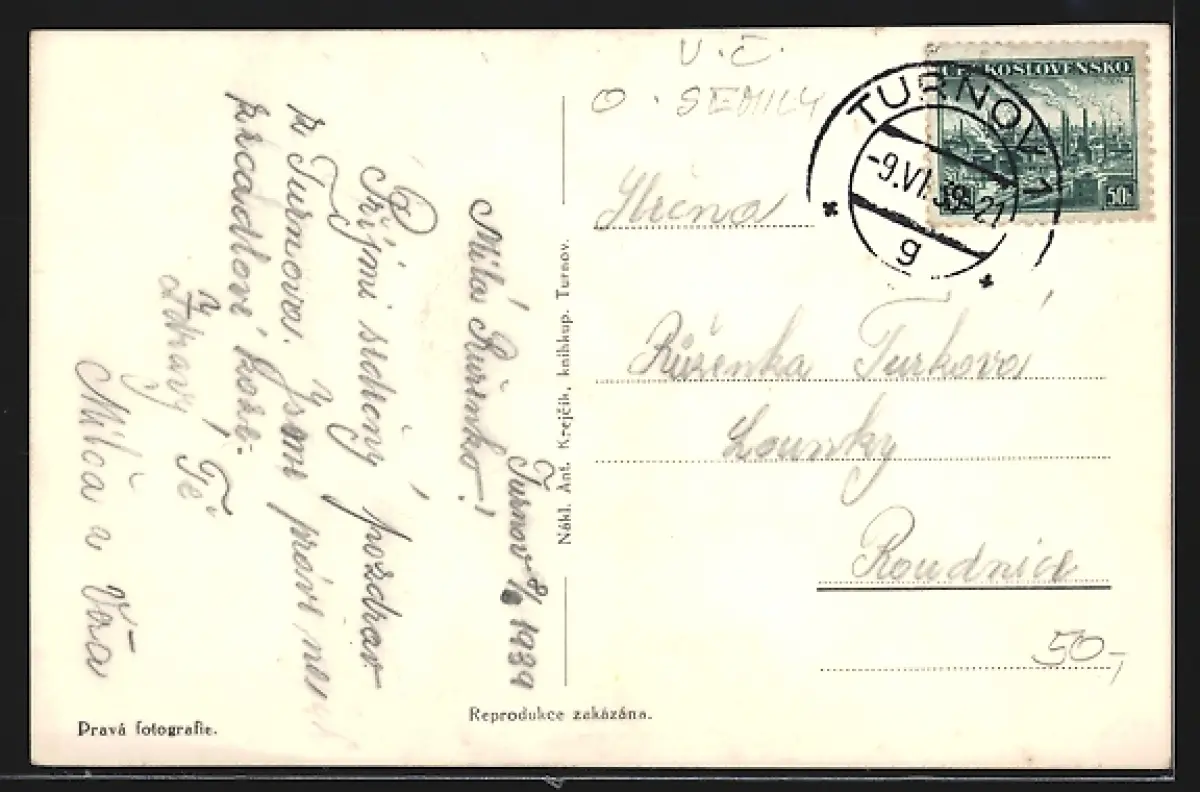 Turnov 8/6 1939
Milá Růženko!
Přijmi srdečný pozdrav
z Turnova. Jsme právě na
zrcadlové koze.
Zdraví Tě
Milča a Věra
Pravá fotografie.
Reprodukce zakázána.
Nákl. Ant. Krejčík, knihkup. Turnov.
V.Č.
O. SEMILY
ČESKOSLOVENSKO
50h
TURNOV 1
-9.VI.39-21
g
Slečna
Růženka Turková
Lounky
Roudnice
50,-